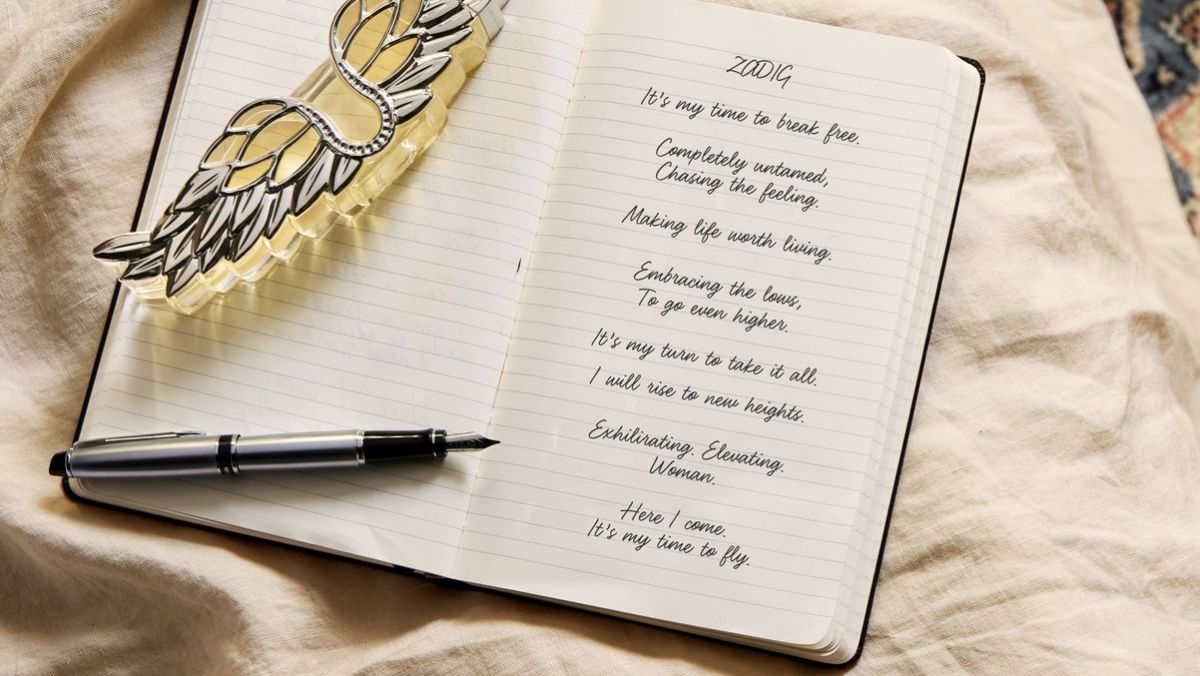 ZADIG
It's my time to break free.
Completely untamed,
Chasing the feeling.
Making life worth living.
Embracing the lows,
To go even higher.
It's my turn to take it all.
I will rise to new heights.
Exhilirating. Elevating.
Woman.
Here I come.
It's my time to fly.